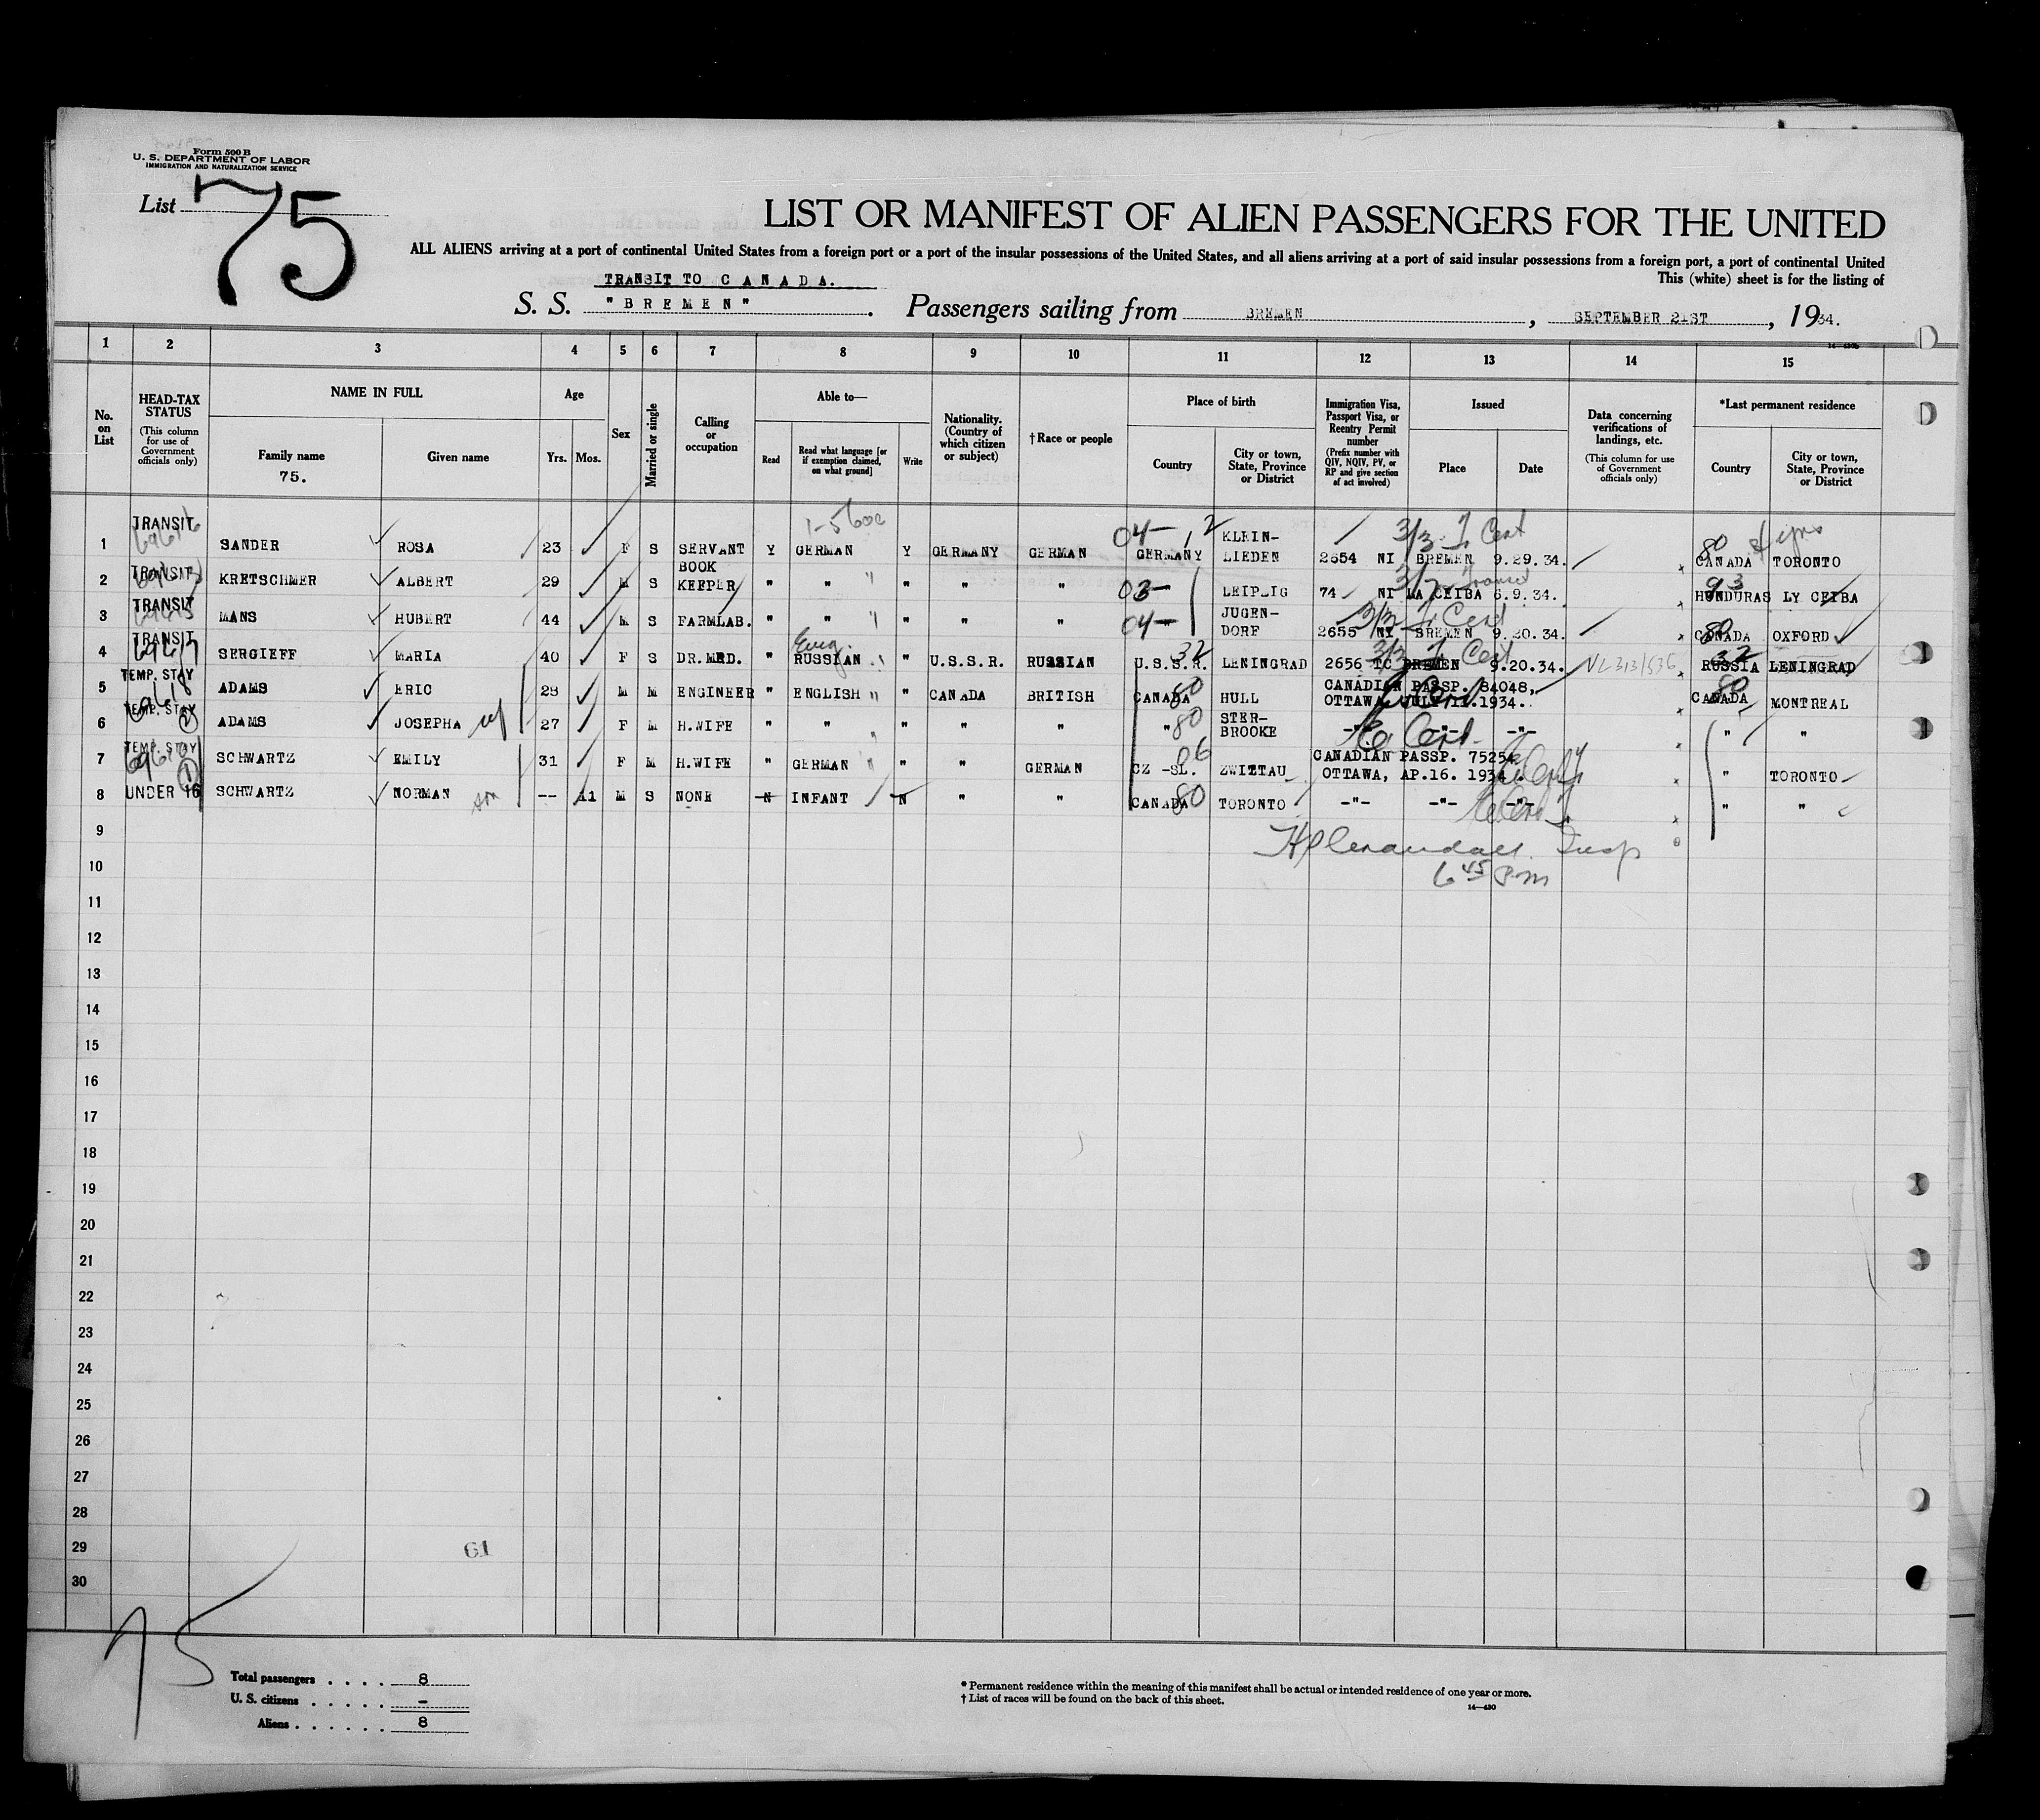 Form 500 B
U. S. DEPARTMENT OF LABOR
IMMIGRATION AND NATURALIZATION SERVICE
List 75
LIST OR MANIFEST OF ALIEN PASSENGERS FOR THE UNITED
ALL ALIENS arriving at a port of continental United States from a foreign port or a port of the insular possessions of the United States, and all aliens arriving at a port of said insular possessions from a foreign port, a port of continental United
This (white) sheet is for the listing of
TRANSIT TO C A N A D A.
S. S. "B R E M E N". Passengers sailing from BREMEN, SEPTEMBER 21ST, 1934.
1 2 3 4 5 6 7 8 9 10 11 12 13 14 15
No. on List
HEAD-TAX STATUS (This column for use of Government officials only)
NAME IN FULL
Family name
75.
Given name
Age
Yrs. Mos.
Sex
Married or single
Calling or occupation
Able to—
Read
Read what language [or if exemption claimed, on what ground]
Write
Nationality. (Country of which citizen or subject)
†Race or people
Place of birth
Country
City or town, State, Province or District
Immigration Visa, Passport Visa, or Reentry Permit number (Prefix number with QIV, NQIV, PV, or RP and give section of act involved)
Issued
Place
Date
Data concerning verifications of landings, etc. (This column for use of Government officials only)
*Last permanent residence
Country
City or town, State, Province or District
1 TRANSIT SANDER ROSA 23 F S SERVANT Y GERMAN Y GERMANY GERMAN 04- GERMANY KLEIN-LIEDEN 2654 NI BREMEN 9.29.34. 80 CANADA TORONTO
2 TRANSIT KRETSCHMER ALBERT 29 M S BOOK KEEPER " " " " " 03- LEIPZIG 74 NI LA CEIBA 6.9.34. 93 HONDURAS LY CEIBA
3 TRANSIT MANS HUBERT 44 M S FARMLAB. " " " " " 04- " JUGEN-DORF 2655 NI BREMEN 9.20.34. 80 CANADA OXFORD
4 TRANSIT SERGIEFF MARIA 40 F S DR.MED. " RUSSIAN " U.S.S.R. RUSSIAN 32 U.S.S.R. LENINGRAD 2656 TC BREMEN 9.20.34. 32 RUSSIA LENINGRAD
5 TEMP. STAY ADAMS ERIC 28 M M ENGINEER " ENGLISH " CANADA BRITISH 80 CANADA HULL CANADIAN PASSP. 84048, OTTAWA, JULY 11.1934. 80 CANADA MONTREAL
6 TEMP. STAY ADAMS JOSEPHA wf 27 F M H.WIFE " " " " " 80 " STER-BROOKE -"- -"- -"- " "
7 TEMP. STAY SCHWARTZ EMILY 31 F M H.WIFE " GERMAN " " GERMAN 06 CZ -SL. ZWITTAU CANADIAN PASSP. 75254, OTTAWA, AP.16. 1934. " TORONTO
8 UNDER 16 SCHWARTZ NORMAN son -- 11 M S NONE N INFANT N " " 80 CANADA TORONTO -"- -"- -"- " "
9
10 6 45 P.m
11
12
13
14
15
16
17
18
19
20
21
22
23
24
25
26
27
28
29 61
30
75
Total passengers . . . . 8
U. S. citizens . . . . . –
Aliens . . . . . . 8
* Permanent residence within the meaning of this manifest shall be actual or intended residence of one year or more.
† List of races will be found on the back of this sheet.
14—430